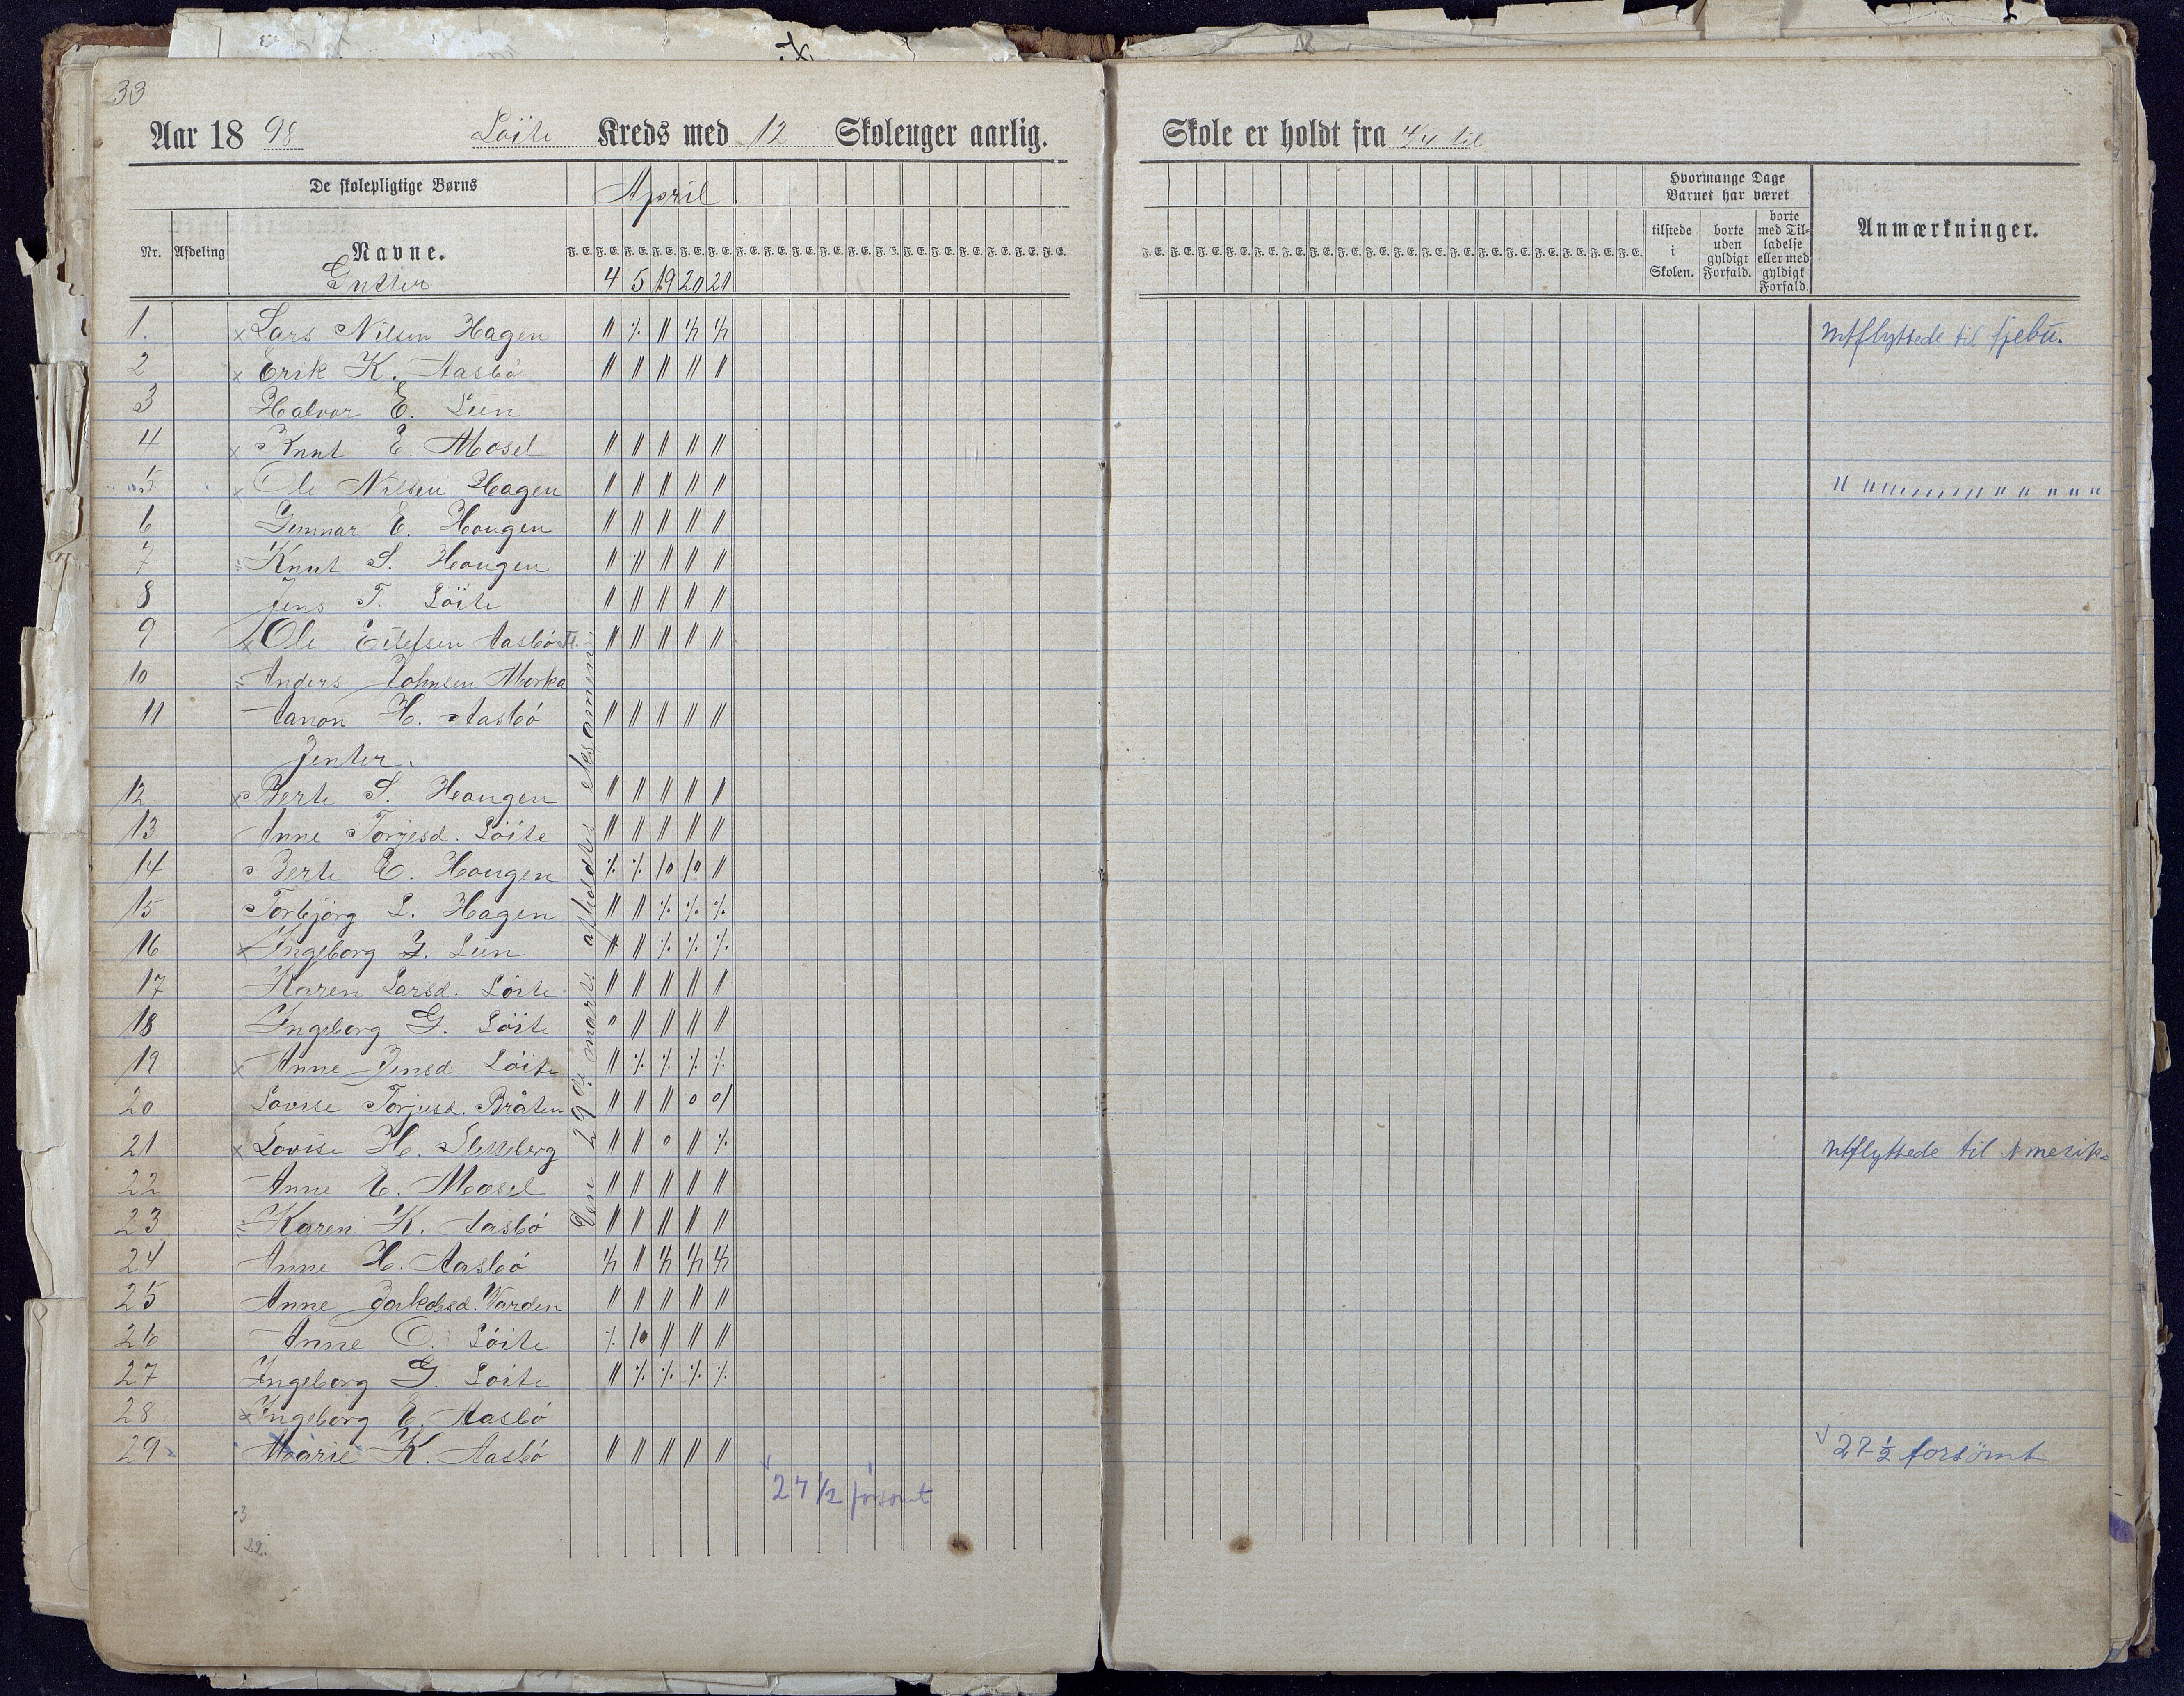 33
Aar 18 98 Löite Kreds med 12 Skoleuger aarlig. Skole er holdt fra 4/4 til
De skolepligtige Børns April Hvormange Dage Barnet har været
Nr. Afdeling Navne. F. E. F. E. F. E. F. E. F. E. F. E. tilstede i Skolen. borte uden gyldigt Forfald. borte med Tilladelse eller med gyldigt Forfald. Anmærkninger.
Gutter 4 5 19 20 21
1. x Lars Nilsen Hagen utflyttede til
2 x Erik K. Aasbö
3 Halvor E. Lien
4 x Knut E. Mosel
5 x Ole Nilsen Hagen " " " " " " " " "
6 Gunnar E. Haugen
7 Knut S. Haugen
8 Jens T. Löite
9 x Ole Eilefsen Aasbö
10 Anders Johnsen Morka
11 Aanon H. Aasbö
Jenter.
12 x Berte S. Haugen
13 Anne Torjesd. Löite
14 Berte E. Haugen
15 Torbjörg L. Hagen
16 x Ingeborg G. Lien
17 Karen Larsd. Löite
18 Ingeborg G. Löite
19 x Anne Jensd. Löite
20 Lovise Torjusd. Bråten
21 x Lovise H. utflyttede til Amerika
22 Anne E. Mosel
23 Karen K. Aasbö
24 Anne H. Aasbö
25 Anne Varden
26 Anne O. Löite
27 Ingeborg G. Löite
28 x Ingeborg E. Aasbö
29 Marie K. Aasbö 27 1/2 forsömt
Den 29de marts afholdtes eksamen
27 1/2 forsömt
3
22.